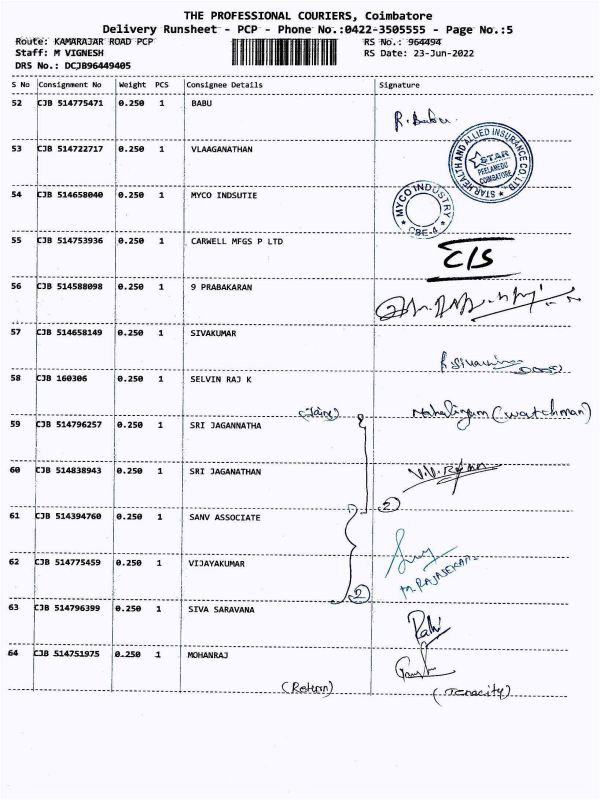 THE PROFESSIONAL COURIERS, Coimbatore
Delivery Runsheet - PCP - Phone No.:0422-3505555 - Page No.:5
Route: KAMARAJAR ROAD PCP RS No.: 964494
Staff: M VIGNESH RS Date: 23-Jun-2022
DRS No.: DCJB96449405
S No Consignment No Weight PCS Consignee Details Signature
52 CJB 514775471 0.250 1 BABU R. Babu
53 CJB 514722717 0.250 1 VLAAGANATHAN
STAR HEALTH AND ALLIED INSURANCE CO. LTD.
STAR
PEELAMEDU
COIMBATORE
54 CJB 514658040 0.250 1 MYCO INDSUTIE
MYCO INDUSTRY
CBE-4
55 CJB 514753936 0.250 1 CARWELL MFGS P LTD
56 CJB 514588098 0.250 1 9 PRABAKARAN
57 CJB 514658149 0.250 1 SIVAKUMAR
58 CJB 160306 0.250 1 SELVIN RAJ K
(watchman)
59 CJB 514796257 0.250 1 SRI JAGANNATHA
60 CJB 514838943 0.250 1 SRI JAGANATHAN
2
61 CJB 514394760 0.250 1 SANV ASSOCIATE
62 CJB 514775459 0.250 1 VIJAYAKUMAR
M. RAJASEKAR
2
63 CJB 514796399 0.250 1 SIVA SARAVANA
64 CJB 514751975 0.250 1 MOHANRAJ
(Return) (Tenacity)